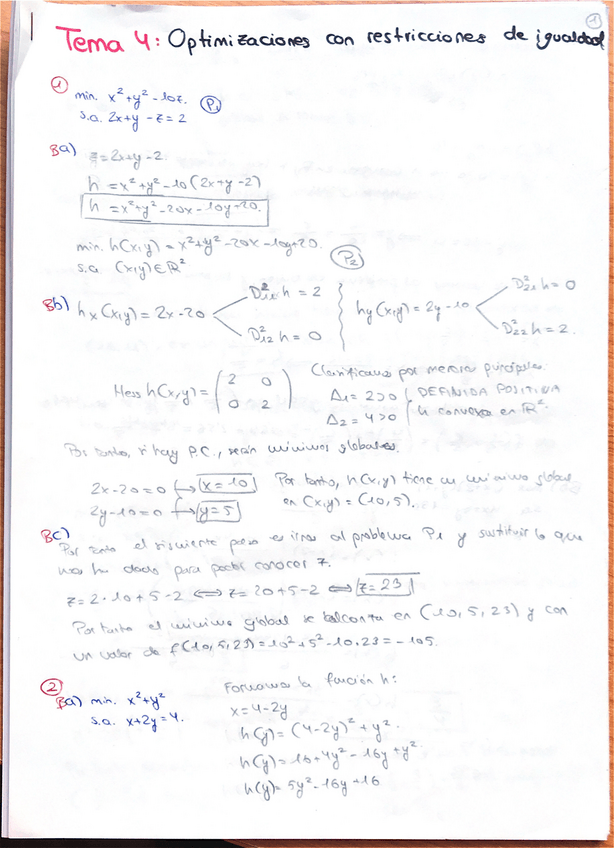 1
Tema 4: Optimizaciones con restricciones de igualdad
1
min. x²+y²-10z. P1
s.a. 2x+y-z=2
Ba) z=2x+y-2
h = x²+y²-10(2x+y-2)
h = x²+y²-20x-10y+20.
min. h(x,y) = x²+y²-20x-10y+20.
s.a. (x,y)∈ℝ² P2
Bb) hx(x,y)=2x-20 D²11h=2 D²12h=0 hy(x,y)=2y-10 D²21h=0 D²22h=2.
Clasificamos por menores principales.
Hess h(x,y)=(2 0 / 0 2) Δ1=2>0 Δ2=4>0 DEFINIDA POSITIVA
h convexa en ℝ².
Por tanto, si hay P.C., serán mínimos globales.
2x-20=0 → x=10 Por tanto, h(x,y) tiene un mínimo global
2y-10=0 → y=5 en (x,y)=(10,5).
Bc)
Por tanto el siguiente paso es irnos al problema P1 y sustituir lo que
nos ha dado para poder conocer z.
z=2·10+5-2 ⟺ z=20+5-2 ⟺ z=23
Por tanto el mínimo global se en (10,5,23) y con
un valor de f(10,5,23)=10²+5²-10.23=-105.
2
Ba) min. x²+y²
s.a. x+2y=4.
Formamos la función h:
x=4-2y
h(y)=(4-2y)²+y².
h(y)=16+4y²-16y+y².
h(y)=5y²-16y+16